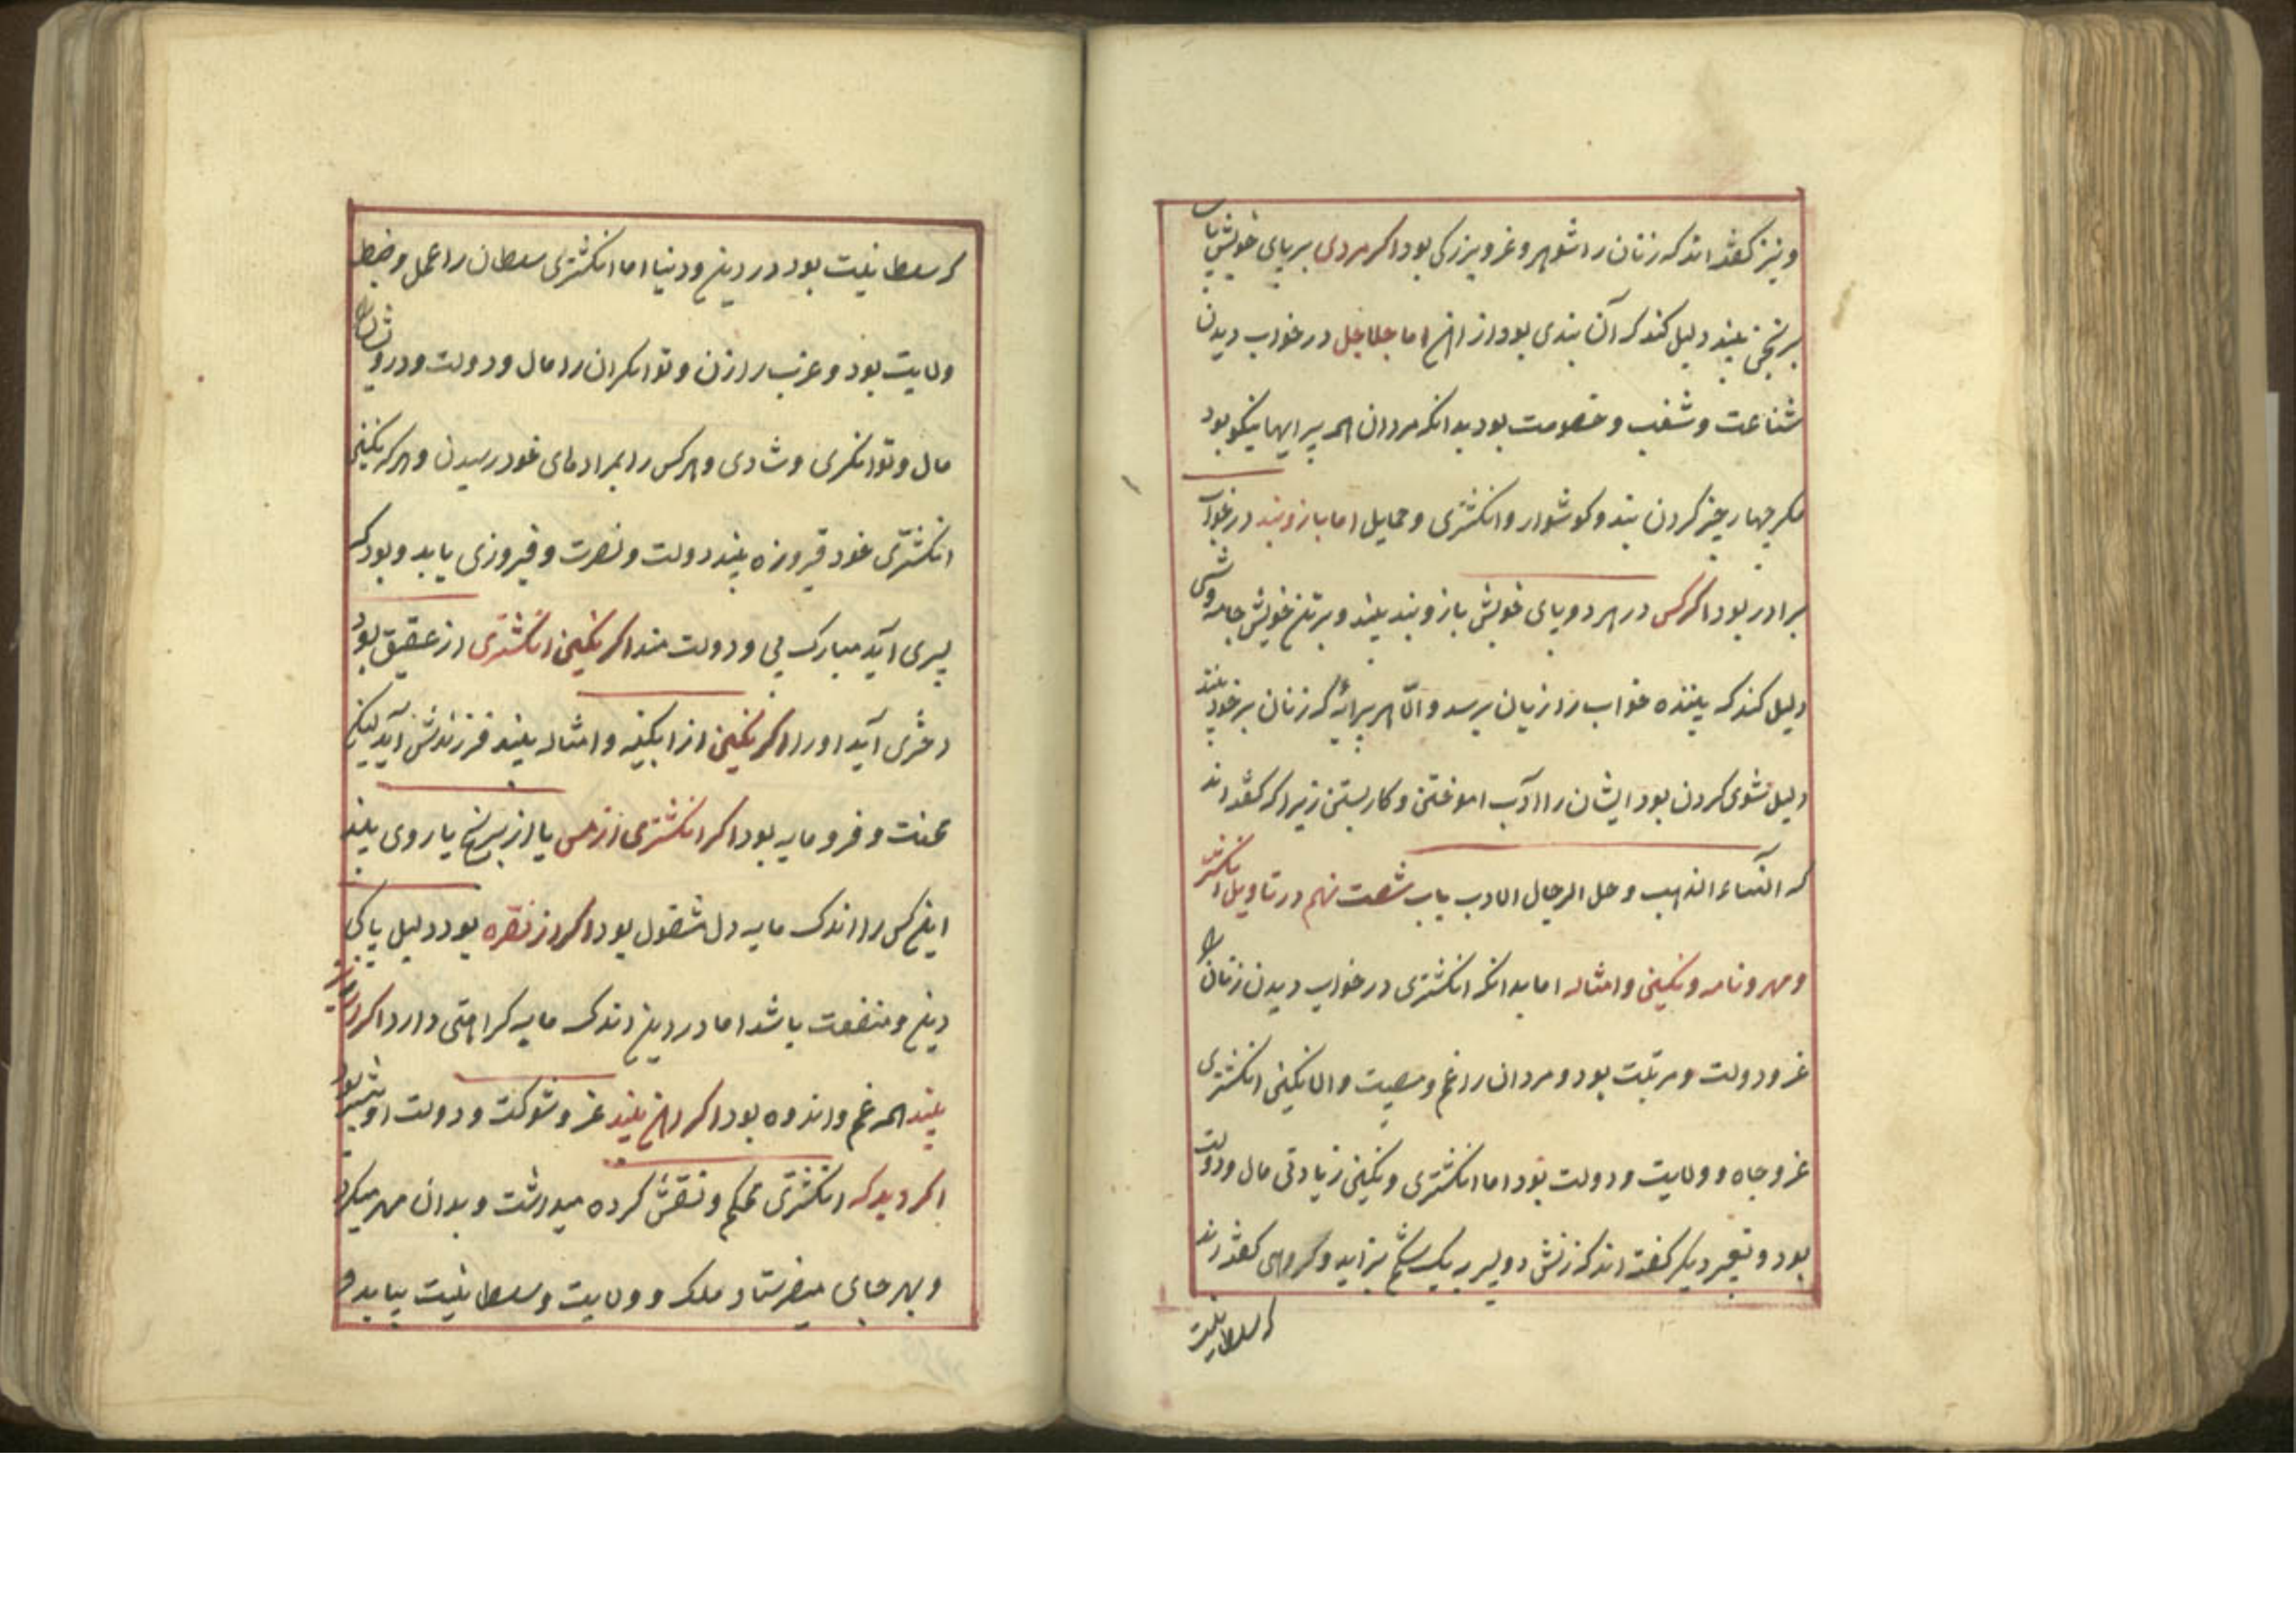 ونیز کفته‌اند که زنان را شوهر و عز و بزرکی بود اکر مردی بر پای خویش پای
برنجن بیند دلیل کند که آن بندی بود از آهن اما جلاجل در خواب دیدن
شناعت و شغب و خصومت بود بدانکه مردان را همه پیرایها نیکو بود
مکر چهار چیز کردن بند و کوشوار و انکشتری و حمایل اما بازو بند در خواب
برادر بود اکر کس در هر دو پای خویش بازو بند بیند و بر تن خویش جامه
دلیل کند که بیننده خواب را زیان برسد و الّا هر پیرایهٔ که زنان بر خود بینند
دلیل شوی کردن بود ایشان را آدب اموختن و کار بستن زیرا که کفته‌اند
که النساء الذهب و حل الرجال الادب باب شصت نهم در تاویل انکشتری
و مهر و نامه و نکین و امثاله اما بدانکه انکشتری در خواب دیدن زنان را
عز و دولت و مرتبت بود و مردان را غم و مصیبت و الا نکین انکشتری
عز و جاه و ولایت و دولت بود اما انکشتری و نکین زیادتی مال و دولت
بود و تعبیر دیکر کفته‌اند که زنش دو پسر به یک شکم بزاید و کروهی کفته‌اند
که سلطانیت
که سلطانیت بود در دین و دنیا اما انکشتری سلطان را عمل و ضبط
ولایت بود و عزب را زن و توانکران را مال و دولت و درویشان را
مال و توانکری و شادی و هر کس را بمرادهای خود رسیدن و هر که نکین
انکشتری خود فیروزه بیند دولت و نصرت و فیروزی یابد و بود که
پسری آید مبارک پی و دولت مند اکر نکین انکشتری از عقیق بود
دختری آید او را اکر نکین از ابکینه و امثاله بیند فرزندش آید لیکن
محنت و فرومایه بود اکر انکشتری از مس یا از برنج یا روی بیند
این کس را اندک مایه دل مشغول بود اکر از نقره بود دلیل پاکی
دین و منفعت باشد اما در دین اندک مایه کراهتی دارد اکر از
بیند همه غم و اندوه بود اکر آهن بیند عز و شوکت و دولت او بیشتر بود
اکر دید که انکشتری محکم و نقش کرده میداشت و بدان مهر میکرد
و بهر جای میفرستاد ملک و ولایت و سلطانیت بیابد و